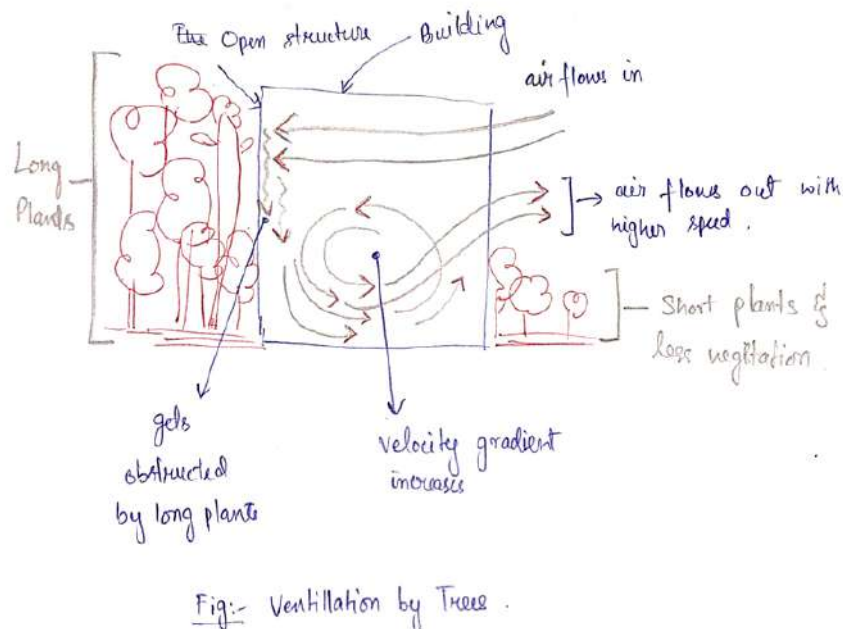 Open structure
Building
air flows in
Long
Plants
air flows out with
higher speed.
Short plants &
less vegitation
gets
obstructed
by long plants
velocity gradient
increases
Fig:- Ventillation by Trees.